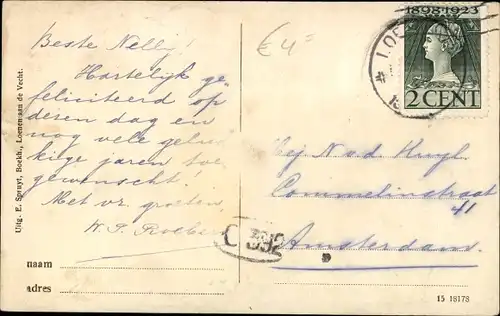 Beste Nelly!
Hartelijk ge-
feliciteerd op
dezen dag en
nog vele geluk-
kige jaren toe
gewenscht!
Met vr. groeten
W. P.
naam
adres
Uitg. E. Spruyt, Boekh., Loenen aan de Vecht.
€ 4
1898-1923
2 CENT
LOE
Mej N v d
Commelinstraat
41
Amsterdam.
15 18178